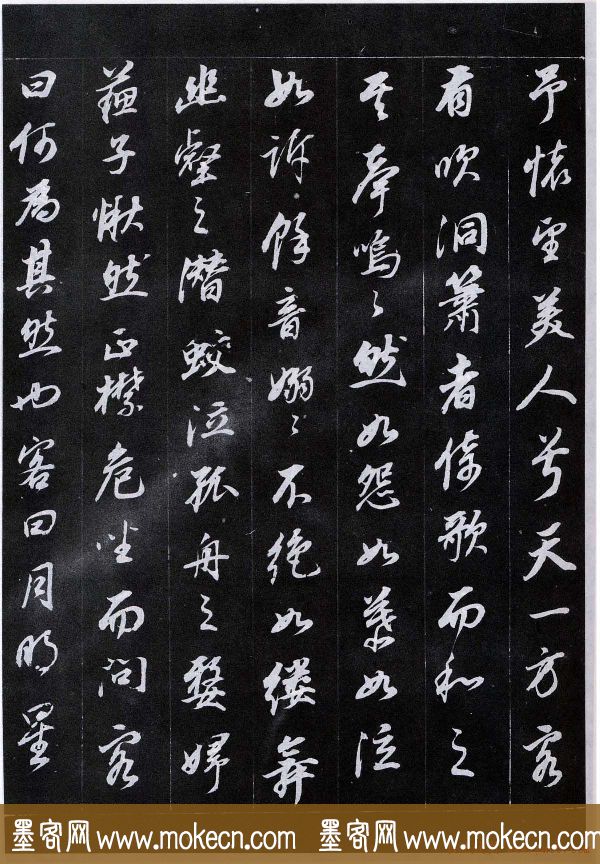 予懷望美人兮天一方客
有吹洞簫者倚歌而和之
其聲嗚〻然如怨如慕如泣
如訴餘音嫋〻不絕如縷舞
幽壑之潛蛟泣孤舟之嫠婦
蘇子愀然正襟危坐而問客
曰何為其然也客曰月明星
墨客网 www.mokecn.com 墨客网 www.mokecn.com